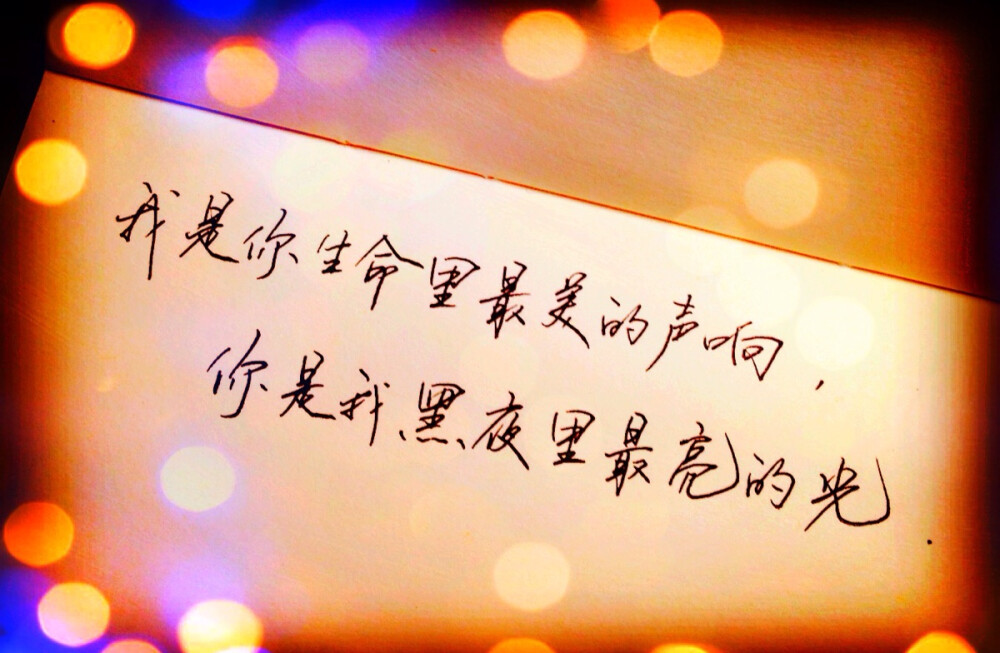 我是你生命里最美的声响,
你是我黑夜里最亮的光.